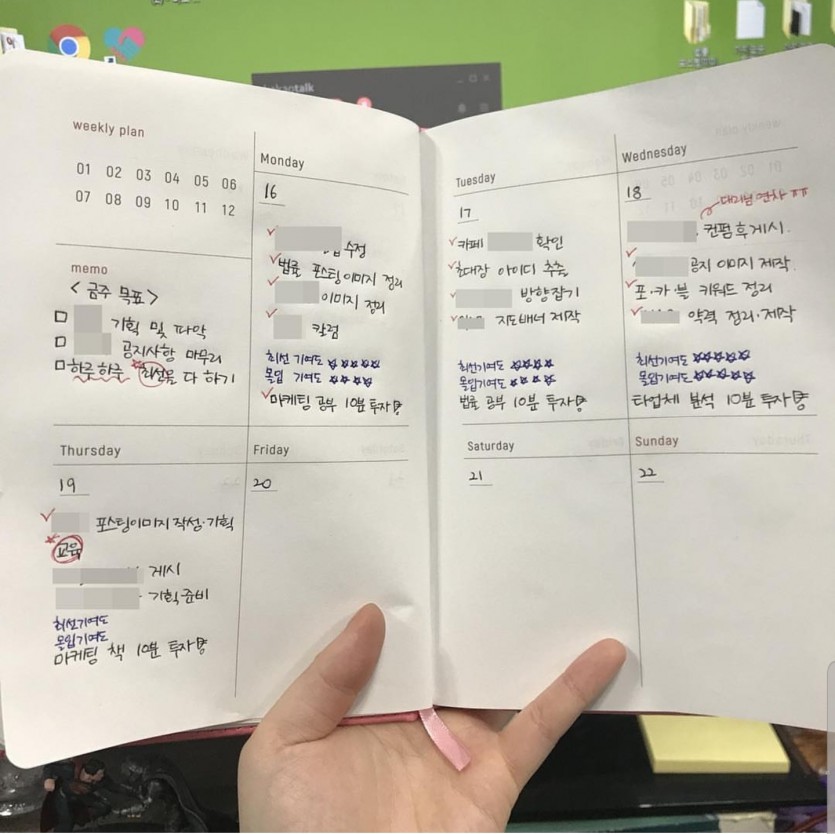 weekly plan
01 02 03 04 05 06
07 08 09 10 11 12
memo
<금주 목표>
기획 및 파악
공지사항 마무리
하루하루 최선을 다 하기
Monday
16
수정
법률 포스팅이미지 정리
이미지 정리
칼럼
최선 기여도 ☆☆☆☆☆
몰입 기여도 ☆☆☆☆
마케팅 공부 10분 투자
Tuesday
17
카페 확인
초대장 아이디 추출
방향잡기
지도배너 제작
최선기여도 ☆☆☆☆
몰입기여도 ☆☆☆☆
법률 공부 10분 투자
Wednesday
18
대리님 연차 ㅠㅠ
컨펌 후 게시.
공지 이미지 제작.
포·카·블 키워드 정리
약력 정리·제작
최선기여도 ☆☆☆☆☆
몰입기여도 ☆☆☆☆☆
타업체 분석 10분 투자
Thursday
19
포스팅이미지 작성·기획
교육
게시
기획·준비
최선기여도
몰입기여도
마케팅 책 10분 투자
Friday
20
Saturday
21
Sunday
22